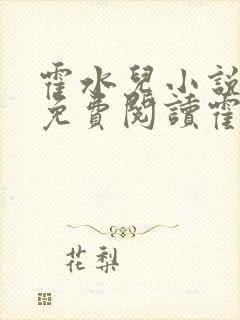 霍水兒小說
免費閱讀霍
花梨